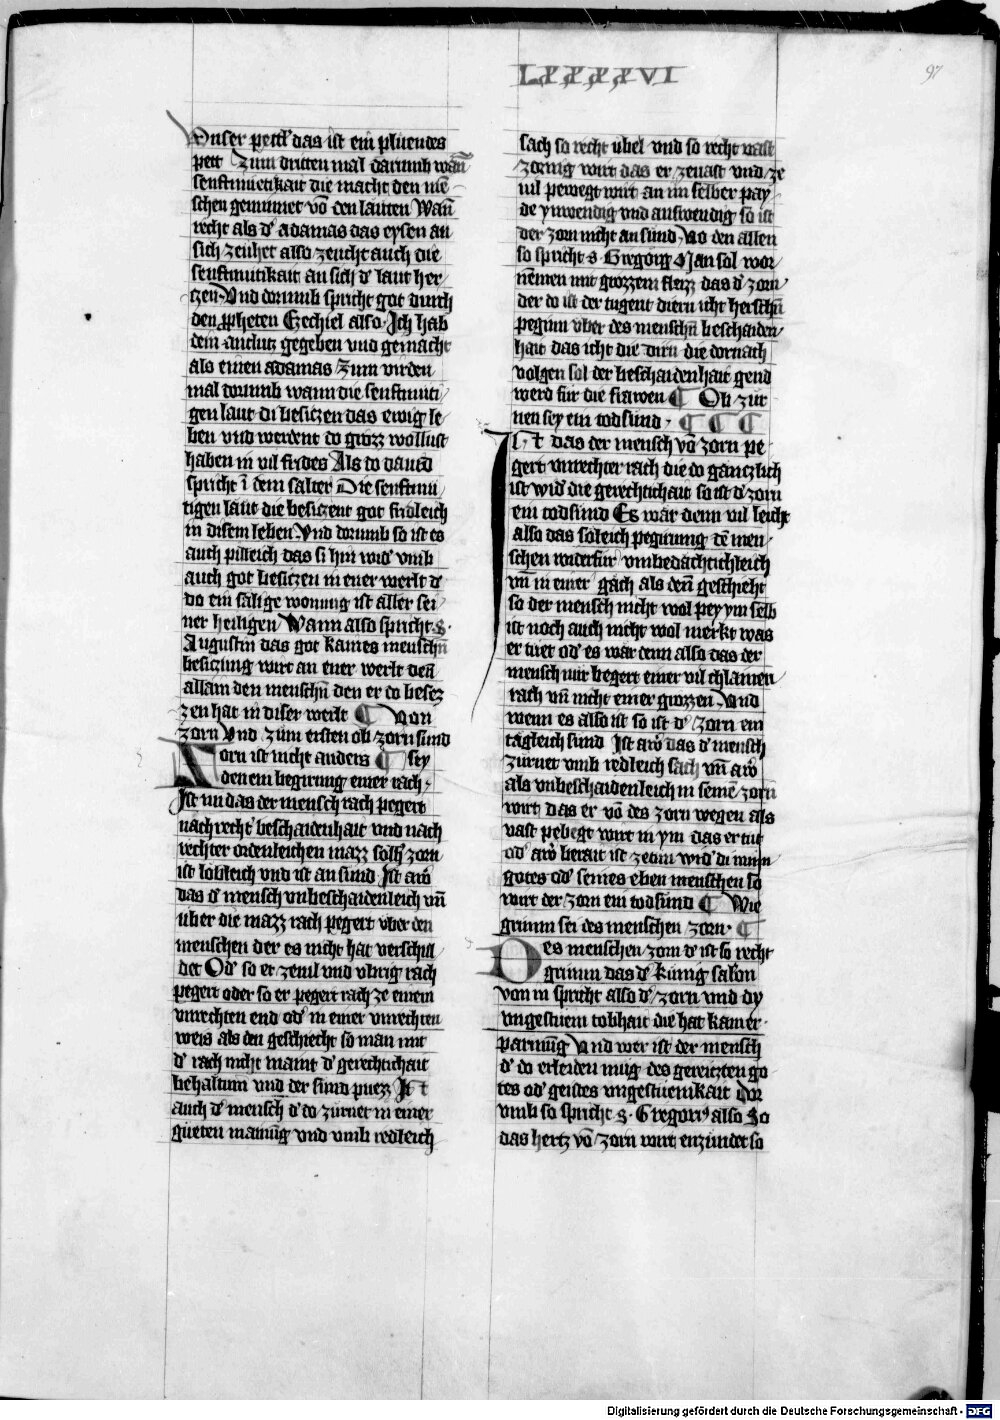 LXXXXVI
97
Vnser pettl das ist ein plueudes
pett Zum dritten mal darumb wan̄
senftmuetikait die macht den mē
schen genumet vō den lauten Wan̄
recht als d' adamas das eysen an
sich zeuhet also zeucht auch die
senftmutikait an sich d' laut her
tzen Vnd dorumb spricht got durch
den ꝓpheten Ezechiel also Ich hab
dein antlutz gegeben vnd gemacht
als einen adamas Zum virden
mal dorumb wann die senftmuti
gen laut di besitzen das ewig le
ben vnd werdent do grozz wollust
haben in vil frides Als do dauid
spricht ī dem salter Die senftmu
tigen laut die besitzent got fridleich
in disem leben Vnd dorumb so ist es
auch pilleich das si hin wid' vmb
auch got besitzen in ener werlt d'
do ein salige wonung ist aller sei
ner heiligen Wann also spricht S.
Augustin das got kaines menschn̄
besitzung wirt an ener werlt den̄
allain den menschn̄ den er do besez
zen hat in diser werlt ¶ Von
zorn Vnd zum ersten ob zorn sund
Zorn ist nicht anders ¶ sey
denem begirung einer rach
Ist nu das der mensch rach pegert
nach recht' beschaidenhait vnd nach
rechter ordenleichen mazz solh' zorn
ist lobleich vnd ist an sund Ist aw'
das d' mensch vnbeschaidenleich vn̄
uber die mazz rach pegert vber den
menschen der es nicht hat verschul
det Od' so er zeuil vnd vbrig rach
pegert oder so er pegert rach ze einem
vnrechten end od' in einer vnrechten
weis als den geschiecht so man mit
d' rach nicht maint d' gerechtichait
behaltum vnd der sund puezz Ist
auch d' mensch d' do zurnet in einer
gueten mainūg vnd vmb redleich
sach so recht vbel vnd so recht vast
zornig wirt das er zeuast vnd ze
uil pewegt wirt an im selber pay
de ynwendig vnd auswendig so ist
der zorn nicht an sund Vo den allen
so spricht s. Gregorg Man sol wor
nemen mit grozzem fleizz das d' zorn
der do ist der tugent diern icht herschn̄
peginn vber des menschn̄ beschaiden
hait das icht die dirn die dornach
volgen sol der beschaidenhait gend
werd fur die frawen ¶ Ob zur
nen sey ein todsund ¶ ¶ ¶
Ist das der mensch vō zorn pe
gert vnrechter rach die do gantzlich
ist wid' die gerechtichait so ist d' zorn
ein todsund Es war denn vil leicht
also das soleich pegirung dē men
schen widerfur vmbedachtichleich
vn̄ in einer gach als den̄ geschieht
so der mensch nicht wol pey ym selb
ist noch auch nicht wol merkt was
er tuet od' es war denn also das der
mensch nur begert einer vil chlainen
rach vn̄ nicht einer grozzen Vnd
wenn es also ist so ist d' zorn ein
tagleich sund Ist aw' das d' mensch
zurnet vmb redleich sach vn̄ aw'
als vnbeschaidenleich in seinē zorn
wirt das er vō des zorn wegen als
vast pebegt wirt in ym das er tut
od' aw' berait ist zetun wid' di minn
gotes od' seines eben menschen so
wirt der zorn ein todsund ¶ Wie
grimm sei des menschen zorn ¶
Des menschen zorn d' ist so recht
grimm das d' kunig salon
von in spricht also d' zorn vnd dy
vngestuem tobhait die hat kainer
parmūg Vnd wer ist der mensch
d' do erleiden mug des gereizten go
tes od' geistes vngestuemkait Dor
vmb so spricht S. Gregori' also So
das hertz vō zorn wirt enzundet so
Digitalisierung gefördert durch die Deutsche Forschungsgemeinschaft - DFG